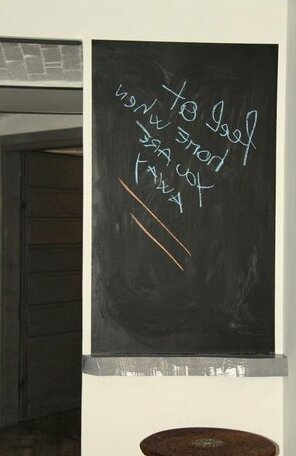 feel at
home when
you are
away